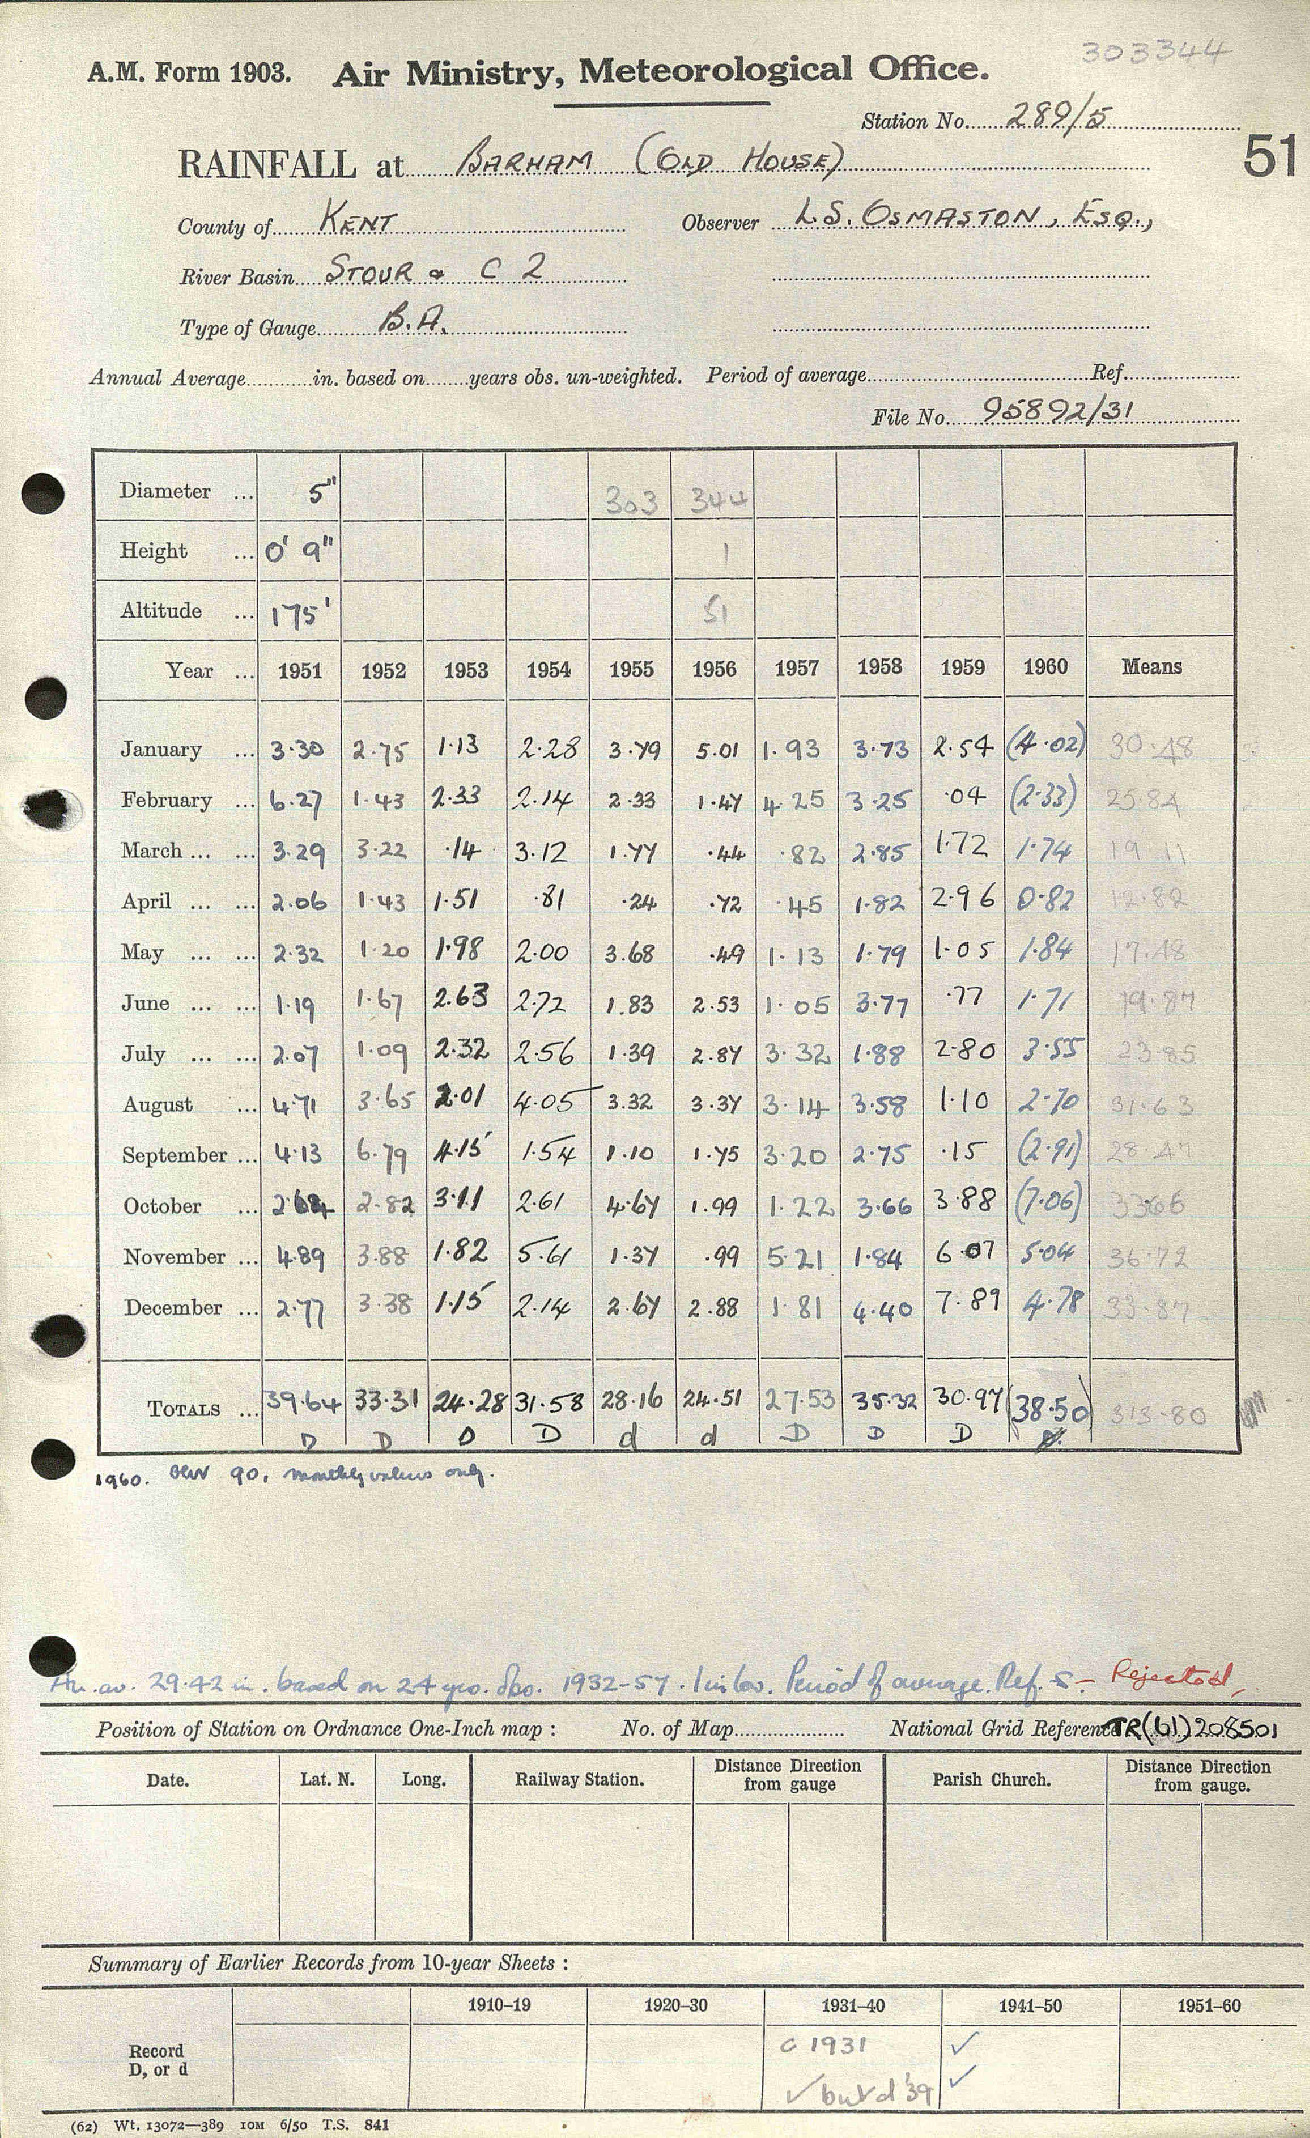 303344
A.M. Form 1903. Air Ministry, Meteorological Office.
Station No. 289/5
51
RAINFALL at BARHAM (OLD HOUSE)
County of KENT Observer L.S. OSMASTON, ESQ.,
River Basin STOUR & C 2
Type of Gauge B.A.
Annual Average in. based on years obs. un-weighted. Period of average Ref.
File No. 95892/31
Diameter ... 5" 303 344
Height ... 0' 9" 1
Altitude ... 175' 51
Year ... 1951 1952 1953 1954 1955 1956 1957 1958 1959 1960 Means
January ... 3.30 2.75 1.13 2.28 3.79 5.01 1.93 3.73 2.54 (4.02) 30.48
February ... 6.27 1.43 2.33 2.14 2.33 1.47 4.25 3.25 .04 (2.33) 25.84
March ... ... 3.29 3.22 .14 3.12 1.77 .44 .82 2.85 1.72 1.74 19.11
April ... ... 2.06 1.43 1.51 .81 .24 .72 .45 1.82 2.96 0.82 12.82
May ... ... 2.32 1.20 1.98 2.00 3.68 .49 1.13 1.79 1.05 1.84 17.48
June ... ... 1.19 1.67 2.63 2.72 1.83 2.53 1.05 3.77 .77 1.71 19.87
July ... ... 2.07 1.09 2.32 2.56 1.39 2.87 3.32 1.88 2.80 3.55 23.85
August ... 4.71 3.65 2.01 4.05 3.32 3.37 3.14 3.58 1.10 2.70 31.63
September ... 4.13 6.79 4.15 1.54 1.10 1.75 3.20 2.75 .15 (2.91) 28.47
October ... 2.64 2.82 3.11 2.61 4.67 1.99 1.22 3.66 3.88 (7.06) 33.66
November ... 4.89 3.88 1.82 5.61 1.37 .99 5.21 1.84 6.07 5.04 36.72
December ... 2.77 3.38 1.15 2.14 2.67 2.88 1.81 4.40 7.89 4.78 33.87
TOTALS ... 39.64 33.31 24.28 31.58 28.16 24.51 27.53 35.32 30.97 (38.50) 313.80
D D D D d d D D D
1960. 90, monthly values only.
An. av. 29.42 in. based on 24 yrs. obs. 1932-57. 1 in low. Period of average. Ref. S - Rejected,
Position of Station on Ordnance One-Inch map : No. of Map National Grid Reference TR(61)208501
Date. Lat. N. Long. Railway Station. Distance Direction from gauge Parish Church. Distance Direction from gauge.
Summary of Earlier Records from 10-year Sheets :
1910–19 1920–30 1931–40 1941–50 1951–60
Record D, or d
c 1931 ✓
✓ but d '39 ✓
(62) Wt. 13072—389 10M 6/50 T.S. 841